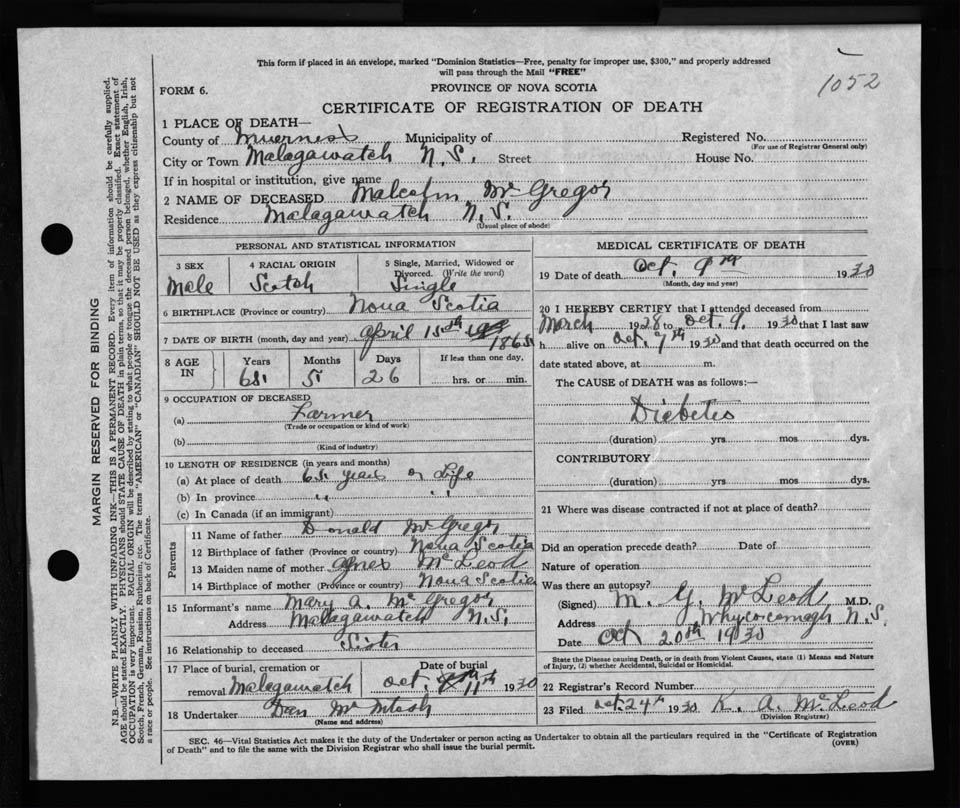 This form if placed in an envelope, marked "Dominion Statistics—Free, penalty for improper use, $300," and properly addressed
will pass through the Mail "FREE"
1052
FORM 6.
PROVINCE OF NOVA SCOTIA
CERTIFICATE OF REGISTRATION OF DEATH
1 PLACE OF DEATH—
County of Inverness Municipality of Registered No.
(For use of Registrar General only)
City or Town Malagawatch N.S. Street House No.
If in hospital or institution, give name
2 NAME OF DECEASED Malcolm McGregor
Residence Malagawatch N.S.
(Usual place of abode)
PERSONAL AND STATISTICAL INFORMATION
3 SEX
Male
4 RACIAL ORIGIN
Scotch
5 Single, Married, Widowed or
Divorced. (Write the word)
Single
6 BIRTHPLACE (Province or country) Nova Scotia
7 DATE OF BIRTH (month, day and year) April 15th 1865
8 AGE IN
Years Months Days If less than one day,
65 5 26 hrs. or min.
9 OCCUPATION OF DECEASED
(a) Farmer
(Trade or occupation or kind of work)
(b)
(Kind of industry)
10 LENGTH OF RESIDENCE (in years and months)
(a) At place of death 65 years or Life
(b) In province " "
(c) In Canada (if an immigrant)
Parents
11 Name of father Donald McGregor
12 Birthplace of father (Province or country) Nova Scotia
13 Maiden name of mother Agnes McLeod
14 Birthplace of mother (Province or country) Nova Scotia
15 Informant's name Mary A. McGregor
Address Malagawatch N.S.
16 Relationship to deceased Sister
17 Place of burial, cremation or
removal Malagawatch
Date of burial
Oct. 11th 1930
18 Undertaker Dan McIntosh
(Name and address)
MEDICAL CERTIFICATE OF DEATH
19 Date of death Oct. 9th 1930
(Month, day and year)
20 I HEREBY CERTIFY that I attended deceased from
March 1928 to Oct. 9. 1930 that I last saw
h alive on Oct. 7th 1930 and that death occurred on the
date stated above, at m.
The CAUSE of DEATH was as follows:—
Diabetes
(duration) yrs. mos. dys.
CONTRIBUTORY
(duration) yrs. mos. dys.
21 Where was disease contracted if not at place of death?
Did an operation precede death? Date of
Nature of operation
Was there an autopsy?
(Signed) M. G. McLeod M.D.
Address Whycocomagh N.S.
Date Oct 20th 1930
State the Disease causing Death, or in death from Violent Causes, state (1) Means and Nature
of Injury, (2) whether Accidental, Suicidal or Homicidal.
22 Registrar's Record Number
23 Filed Oct. 24th 1930 K. A. McLeod
(Division Registrar)
SEC. 46—Vital Statistics Act makes it the duty of the Undertaker or person acting as Undertaker to obtain all the particulars required in the "Certificate of Registration
of Death" and to file the same with the Division Registrar who shall issue the burial permit.
(OVER)
MARGIN RESERVED FOR BINDING
N.B.—WRITE PLAINLY WITH UNFADING INK—THIS IS A PERMANENT RECORD. Every item of information should be carefully supplied.
AGE should be stated EXACTLY. PHYSICIANS should STATE CAUSE OF DEATH in plain terms, so that it may be properly classified. Exact statement of
OCCUPATION is very important. RACIAL ORIGIN will be described by stating to what people or tongue the deceased person belonged, whether English, Irish,
Scotch, French, German, Russian, Ruthenian, etc. The terms "AMERICAN" or "CANADIAN" SHOULD NOT BE USED as they express citizenship but not
a race or people. See instructions on back of Certificate.